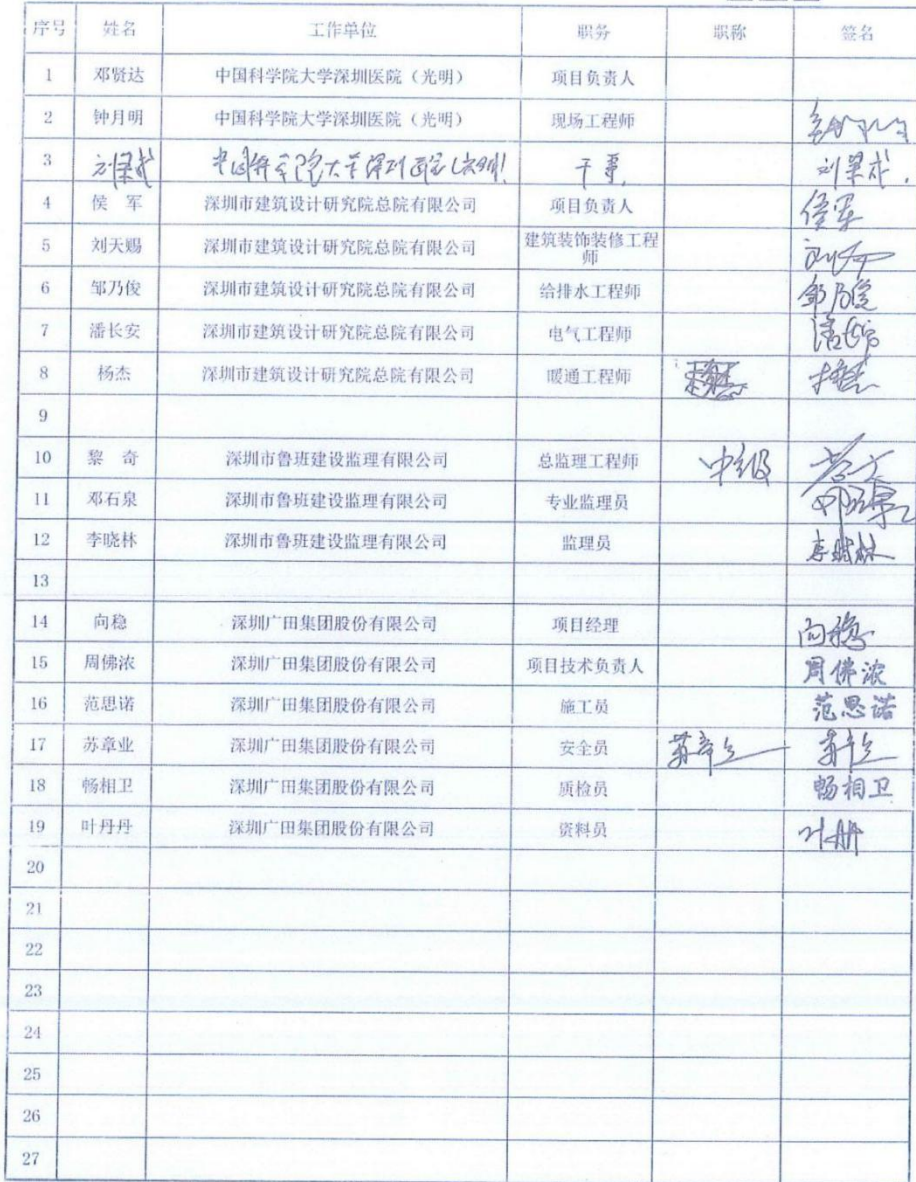 序号 姓名 工作单位 职务 职称 签名
1 邓贤达 中国科学院大学深圳医院（光明） 项目负责人
2 钟月明 中国科学院大学深圳医院（光明） 现场工程师
3 中国科学院大学深圳医院（光明） 干事
4 侯 军 深圳市建筑设计研究院总院有限公司 项目负责人 侯军
5 刘天赐 深圳市建筑设计研究院总院有限公司 建筑装饰装修工程师
6 邹乃俊 深圳市建筑设计研究院总院有限公司 给排水工程师 邹乃俊
7 潘长安 深圳市建筑设计研究院总院有限公司 电气工程师
8 杨杰 深圳市建筑设计研究院总院有限公司 暖通工程师
9
10 黎 奇 深圳市鲁班建设监理有限公司 总监理工程师 中级
11 邓石泉 深圳市鲁班建设监理有限公司 专业监理员
12 李晓林 深圳市鲁班建设监理有限公司 监理员 李晓林
13
14 向稳 深圳广田集团股份有限公司 项目经理 向稳
15 周佛浓 深圳广田集团股份有限公司 项目技术负责人 周佛浓
16 范思诺 深圳广田集团股份有限公司 施工员 范思诺
17 苏章业 深圳广田集团股份有限公司 安全员 苏章业 苏章业
18 畅相卫 深圳广田集团股份有限公司 质检员 畅相卫
19 叶丹丹 深圳广田集团股份有限公司 资料员 叶丹丹
20
21
22
23
24
25
26
27